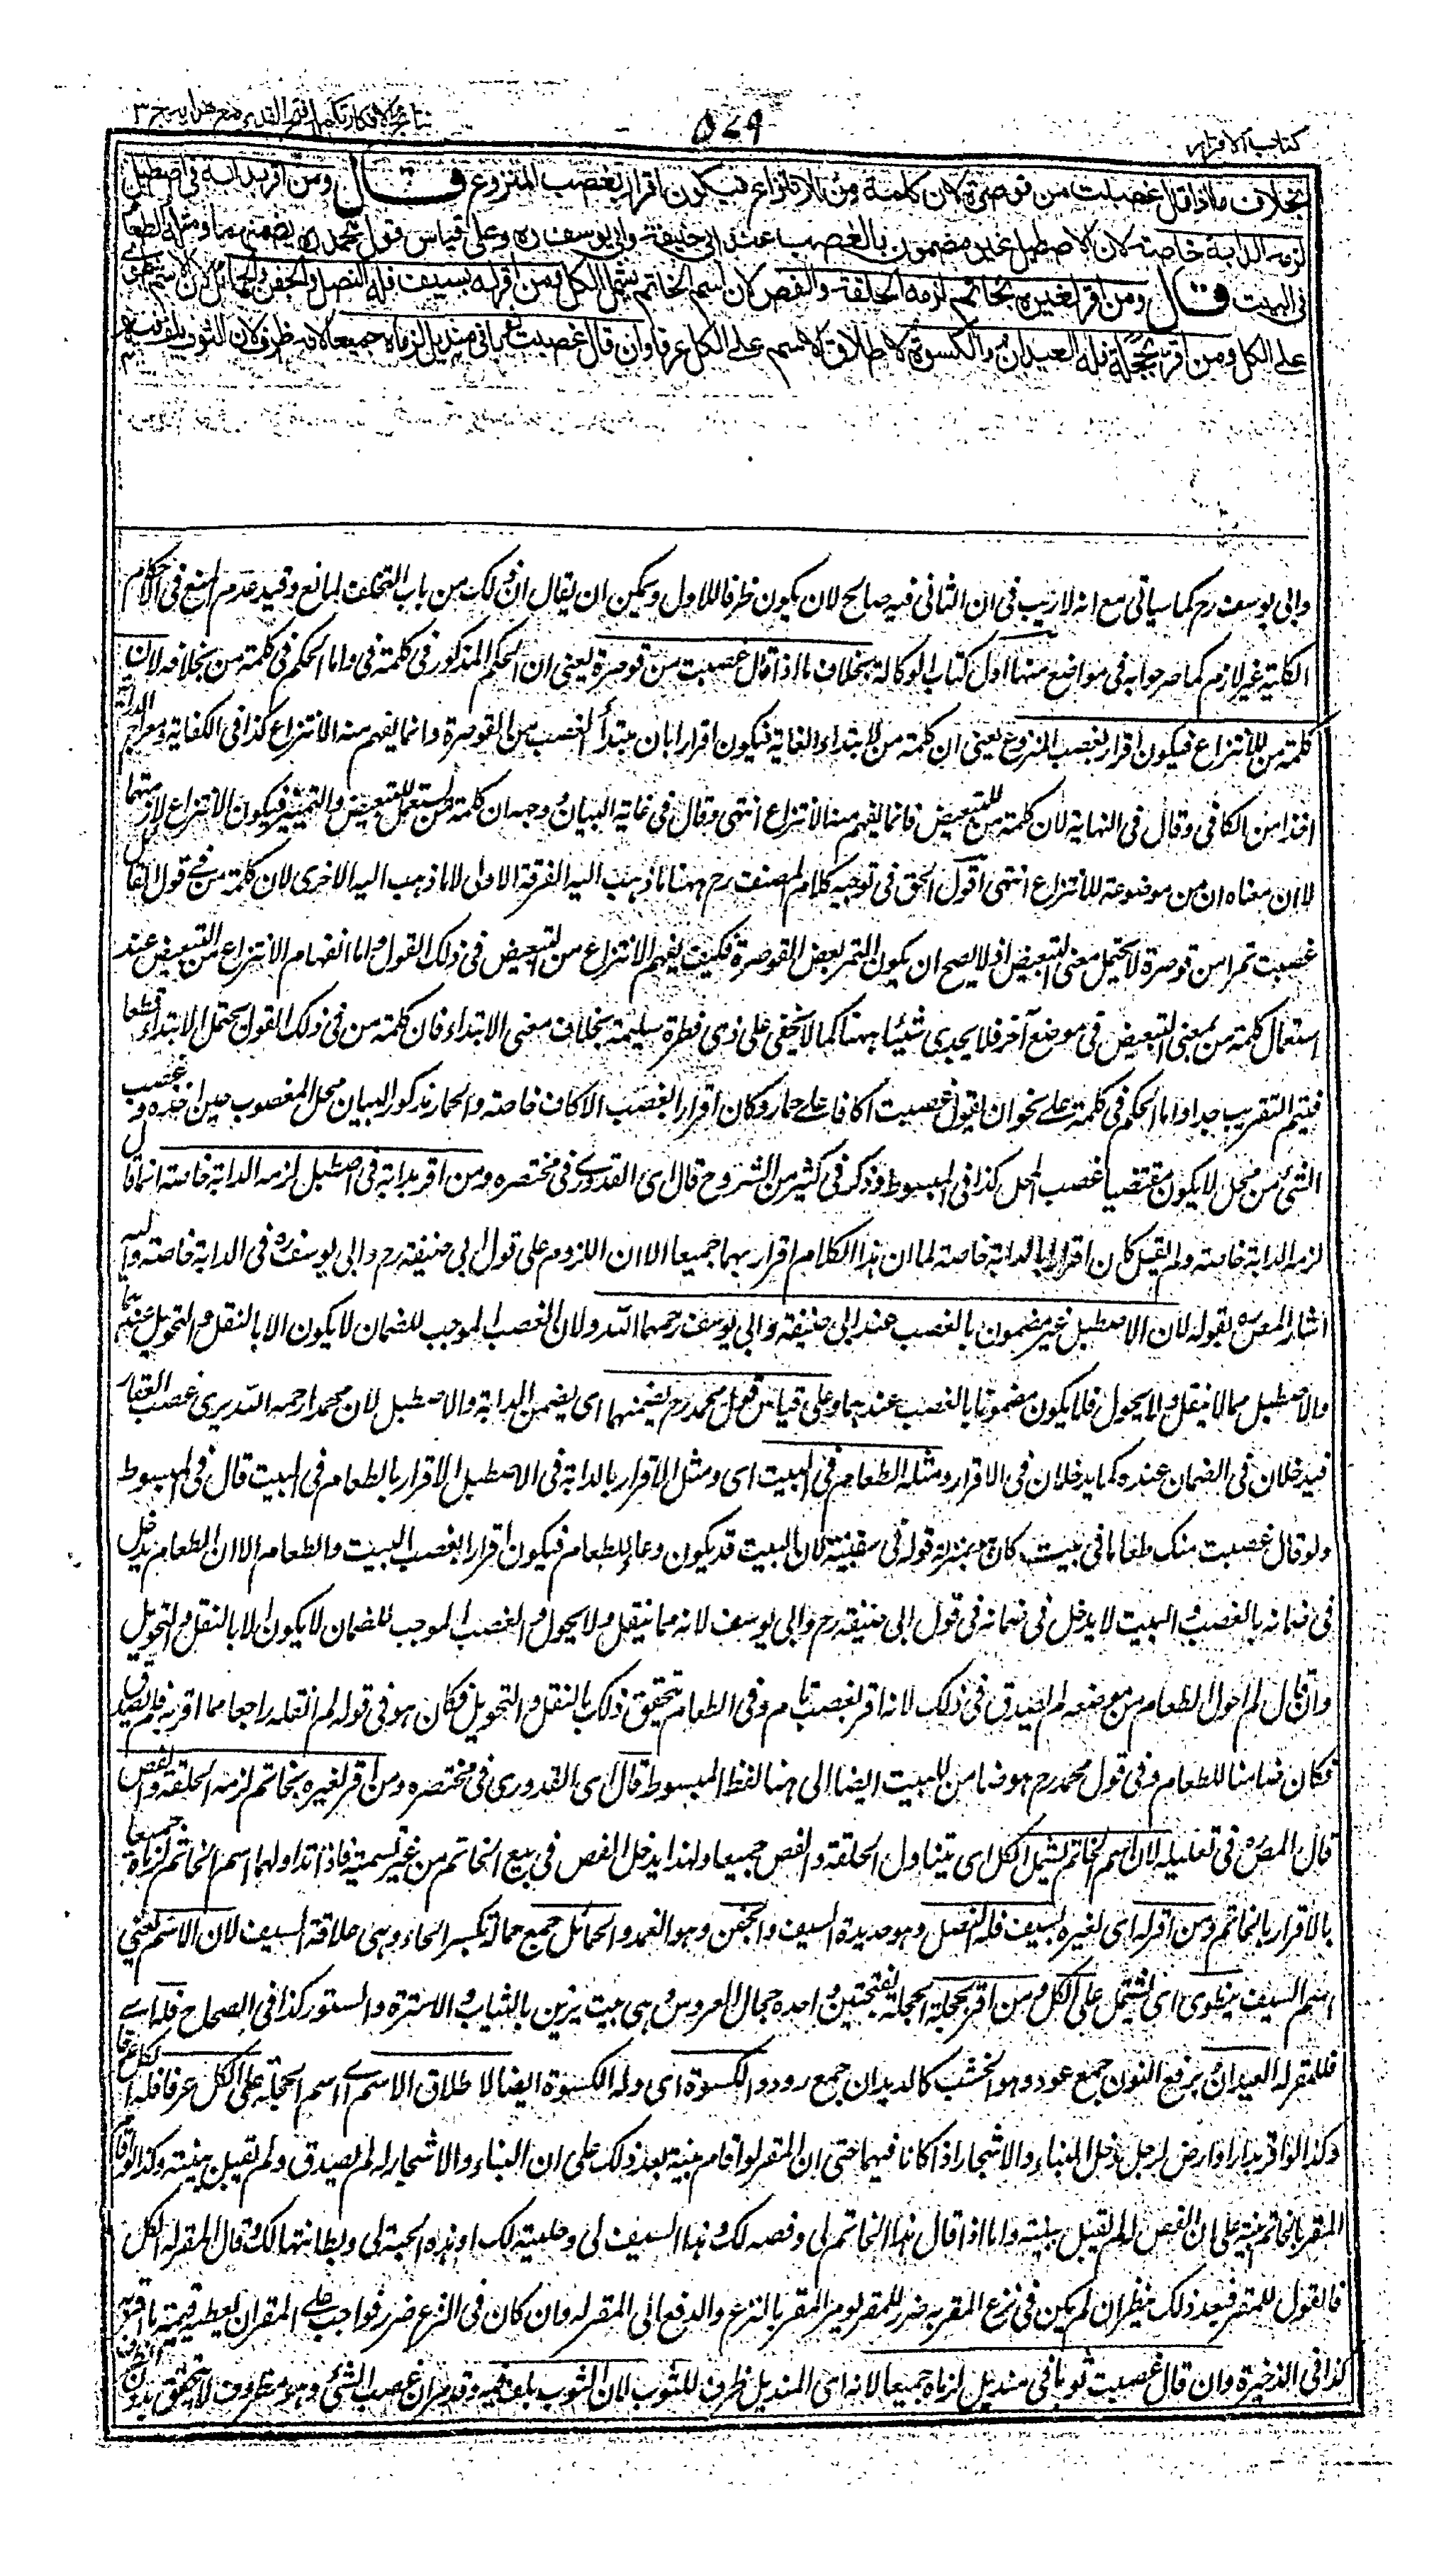 كتاب الاقرار
٥٧٩
نتائج الافكار تكملة فتح القدير مع هدايه ج ٣
بخلاف ما اذا قال غصبت من قوصرة لان كلمة من للانتزاع فيكون اقرارا بغصب المنزوع قال ومن اقر بدابة في اصطبل
لزمه الدابة خاصة لان الاصطبل غير مضمون بالغصب عند ابي حنيفة وابي يوسف ره وعلى قياس قول محمد ره يضمنهما ومثله الطعام
في البيت قال ومن اقر لغيره بخاتم لزمه الحلقة والفص لان اسم الخاتم يشمل الكل ومن اقر له بسيف فله النصل والجفن والحمائل لان الاسم ينطوي
على الكل ومن اقر بحجلة فله العيدان والكسوة لاطلاق الاسم على الكل عرفا وان قال غصبت ثوبا في منديل لزماه جميعا لانه ظرف لان الثوب يلف فيه
وابى يوسف رح كما سياتى مع انه لا ريب فى ان الثانى فيه صالح لان يكون ظرفا للاول ويمكن ان يقال ان ذلك من باب التخلف لمانع وقيد عدم المنع فى الاحكام
الكلية غير لازم كما صرحوا به فى مواضع منها اول كتاب الوكالة بخلاف ما اذا قال غصبت من قوصرة يعنى ان الحكم المذكور فى كلمة فى واما الحكم فى كلمة من بخلافه لان
كلمة من للانتزاع فيكون اقرارا بغصب المنزوع يعنى ان كلمة من لابتداء الغاية فيكون اقرارا بان مبتدأ الغصب من القوصرة وانما يفهم منه الانتزاع كذا فى الكفاية ومعراج الدراية
اخذا من الكافى وقال فى النهاية لان كلمة من للتبعيض فانما يفهم منه الانتزاع انتهى وقال فى غاية البيان وجهه ان كلمة من تستعمل للتبعيض والتمييز فيكون الانتزاع لازمتهما
لا ان معناه ان من موضوعة للانتزاع انتهى اقول الحق فى توجيه كلام المصنف رح ههنا ما ذهبت اليه الفرقة الاولى لا ما ذهبت اليه الاخرى لان كلمة من فى قول القائل
غصبت تمرا من قوصرة لا يحتمل معنى التبعيض اذ لا يصح ان يكون التمر بعض القوصرة فكيف يفهم الانتزاع من التبعيض فى ذلك القول واما انفهام الانتزاع من التبعيض عند
استعمال كلمة من بمعنى التبعيض فى موضع آخر فلا يجدى شيئا ههنا كما لا يخفى على ذى فطرة سليمة بخلاف معنى الابتداء فان كلمة من فى ذلك القول يحتمل الابتداء قطعا
فيتم التقريب جدا واما الحكم فى كلمة على نحو ان يقول غصبت اكافا على حمار فكان اقرارا بغصب الاكاف خاصة والحمار مذكور لبيان محل المغصوب حين اخذه وغصب
الشئ من محل لا يكون مقتضيا غصب المحل كذا فى المبسوط وذكر فى كثير من الشروح قال اى القدورى فى مختصره ومن اقر بدابة فى اصطبل لزمه الدابة خاصة انما قال
لزمه الدابة خاصة ولم يقل كان اقرارا بالدابة خاصة لما ان هذا الكلام اقرار بهما جميعا الا ان اللزوم على قول ابى حنيفة رح وابى يوسف ره فى الدابة خاصة واليه
اشار المصنف ره بقوله لان الاصطبل غير مضمون بالغصب عند ابى حنيفة وابى يوسف رحمهما الله ولان الغصب الموجب للضمان لا يكون الا بالنقل والتحويل عندهما
والاصطبل مما لا ينقل ولا يحول فلا يكون مضمونا بالغصب عندهما وعلى قياس قول محمد رح يضمنهما اى يضمن الدابة والاصطبل لان محمدا رحمه الله يرى غصب العقار
فيدخلان فى الضمان عنده كما يدخلان فى الاقرار ومثله الطعام فى البيت اى ومثل الاقرار بالدابة فى الاصطبل الاقرار بالطعام فى البيت قال فى المبسوط
ولو قال غصبت منك طعاما فى بيت كان بمنزلة قوله فى سفينة لان البيت قد يكون وعاء للطعام فيكون اقرارا بغصب البيت والطعام الا ان الطعام يدخل
فى ضمانه بالغصب والبيت لا يدخل فى ضمانه فى قول ابى حنيفة رح وابى يوسف لانه مما لا ينقل ولا يحول والغصب الموجب للضمان لا يكون الا بالنقل والتحويل
وان قال لم احول الطعام من موضعه لم يصدق فى ذلك لانه اقر بغصب تام وفى الطعام يتحقق ذلك بالنقل والتحويل فكان هو فى قوله لم انقله راجعا مما اقر به فلم يصدق
فكان ضامنا للطعام وفى قول محمد رح هو ضامن للبيت ايضا الى هنا لفظ المبسوط قال اى القدورى فى مختصره ومن اقر لغيره بخاتم لزمه الحلقة والفص
قال المصنف ره فى تعليله لان اسم الخاتم يشمل الكل اى يتناول الحلقة والفص جميعا ولهذا يدخل الفص فى بيع الخاتم من غير تسمية فاذا تناولهما اسم الخاتم لزماه جميعا
بالاقرار بالخاتم ومن اقر له اى لغيره بسيف فله النصل وهو حديدة السيف والجفن وهو الغمد والحمائل جمع حمالة بكسر الحاء وهى علاقة السيف لان الاسم يعنى
اسم السيف ينطوى اى يشتمل على الكل ومن اقر بحجلة الحجلة بفتحتين واحدة حجال العروس وهى بيت يزين بالثياب والاسرة والستور كذا فى الصحاح فله اى
فللمقر له العيدان برفع النون جمع عود وهو الخشب كالديدان جمع دود والكسوة اى وله الكسوة ايضا لاطلاق الاسم اى اسم الحجلة على الكل عرفا فله الكل عرفا
وكذا لو اقر بدار او ارض لرجل دخل البناء والاشجار اذا كانا فيهما حتى ان المقر لو اقام بينة بعد ذلك على ان البناء والاشجار له لم يصدق ولم يقبل بينته وكذا لو اقام
المقر بالخاتم بينة على ان الفص له لم يقبل بينته واما اذا قال هذا الخاتم لى وفصه لك وهذا السيف لى وحليته لك او هذه الجبة لى وبطانتها لك وقال المقر له الكل لى
فالقول للمقر فبعد ذلك ينظر ان لم يكن فى نزع المقر به ضرر للمقر يؤمر المقر بالنزع والدفع الى المقر له وان كان فى النزع ضرر فواجب على المقر ان يعطيه قيمة ما اقر به
كذا فى الذخيرة وان قال غصبت ثوبا فى منديل لزماه جميعا لانه اى المنديل ظرف للثوب لان الثوب يلف فيه وقد مر ان غصب الشئ وهو مظروف لا يتحقق بدون